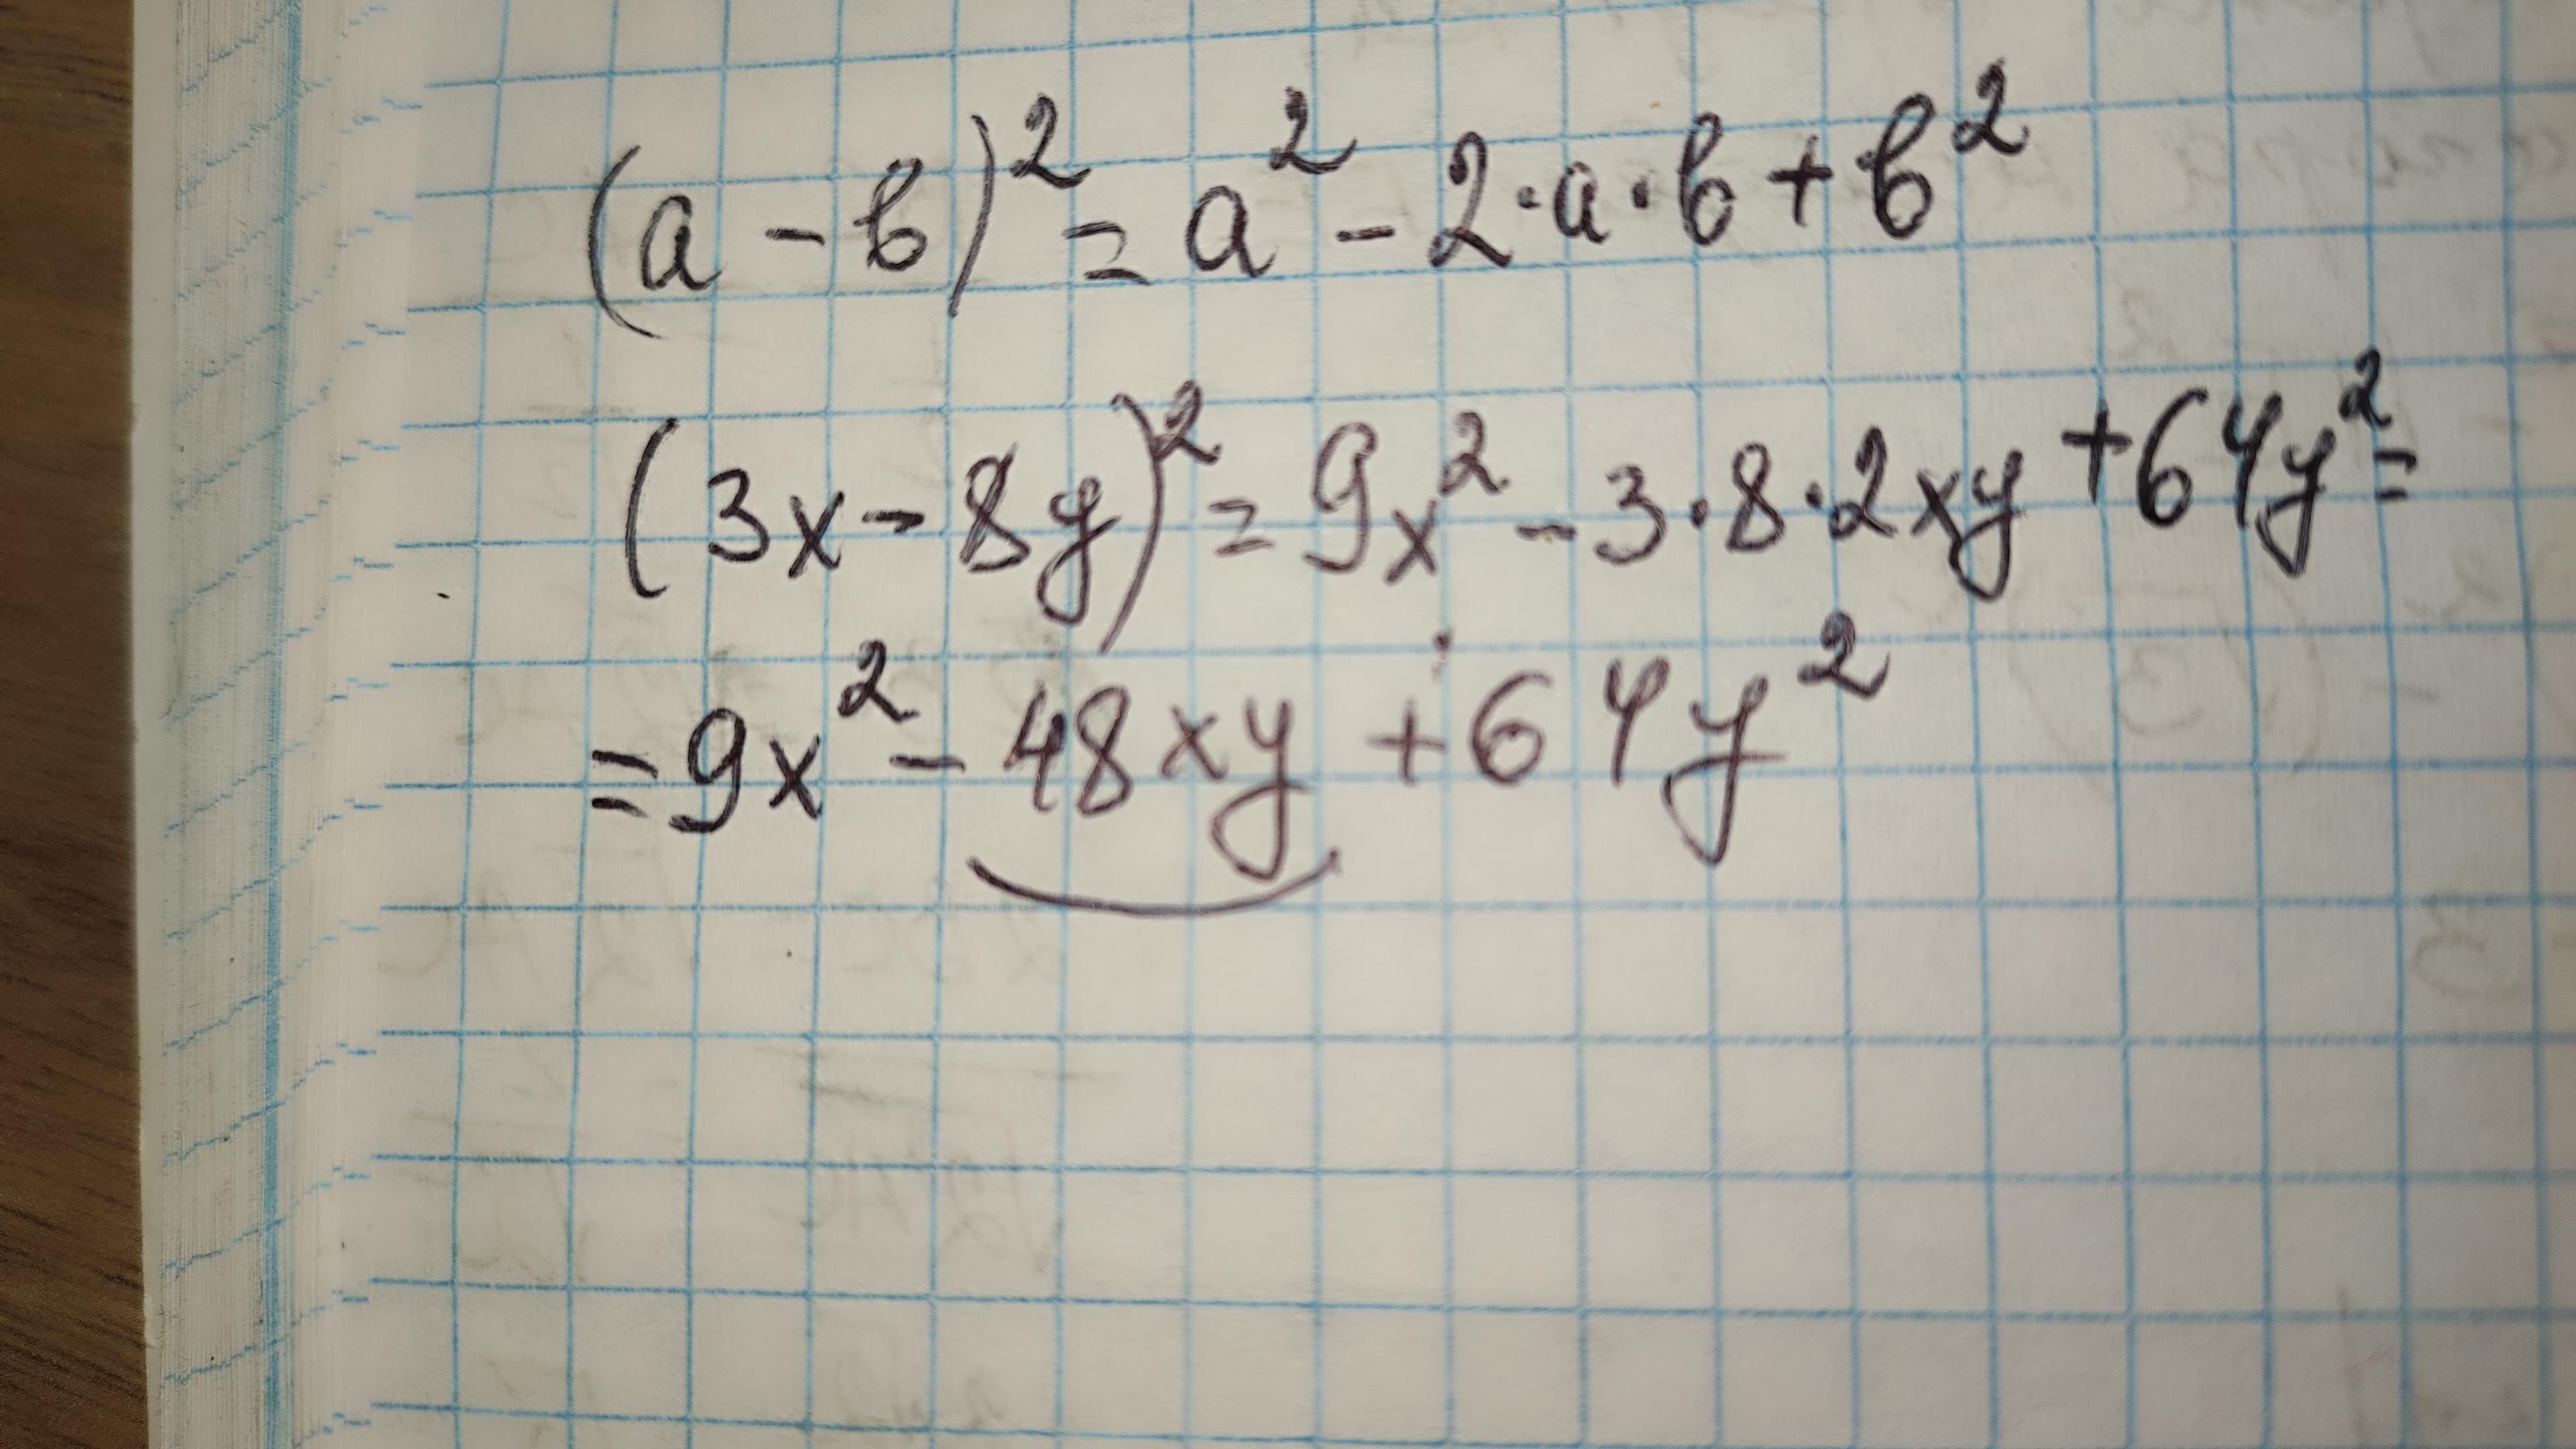 (a - b)² = a² - 2·a·b + b²
(3x - 8y)² = 9x² - 3·8·2xy + 64y² =
= 9x² - 48xy + 64y²